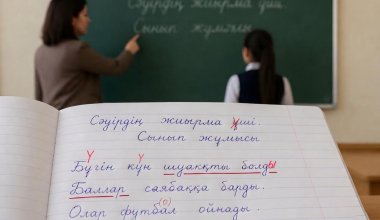 Сәуірдің жиырма үші.
Сынып жұмысы
Сәуірдің жиырма үші.
Сынып жұмысы
Бүгін күн шуақкты болды
Баллар саябаққа барды.
Олар футбал (о) ойнады